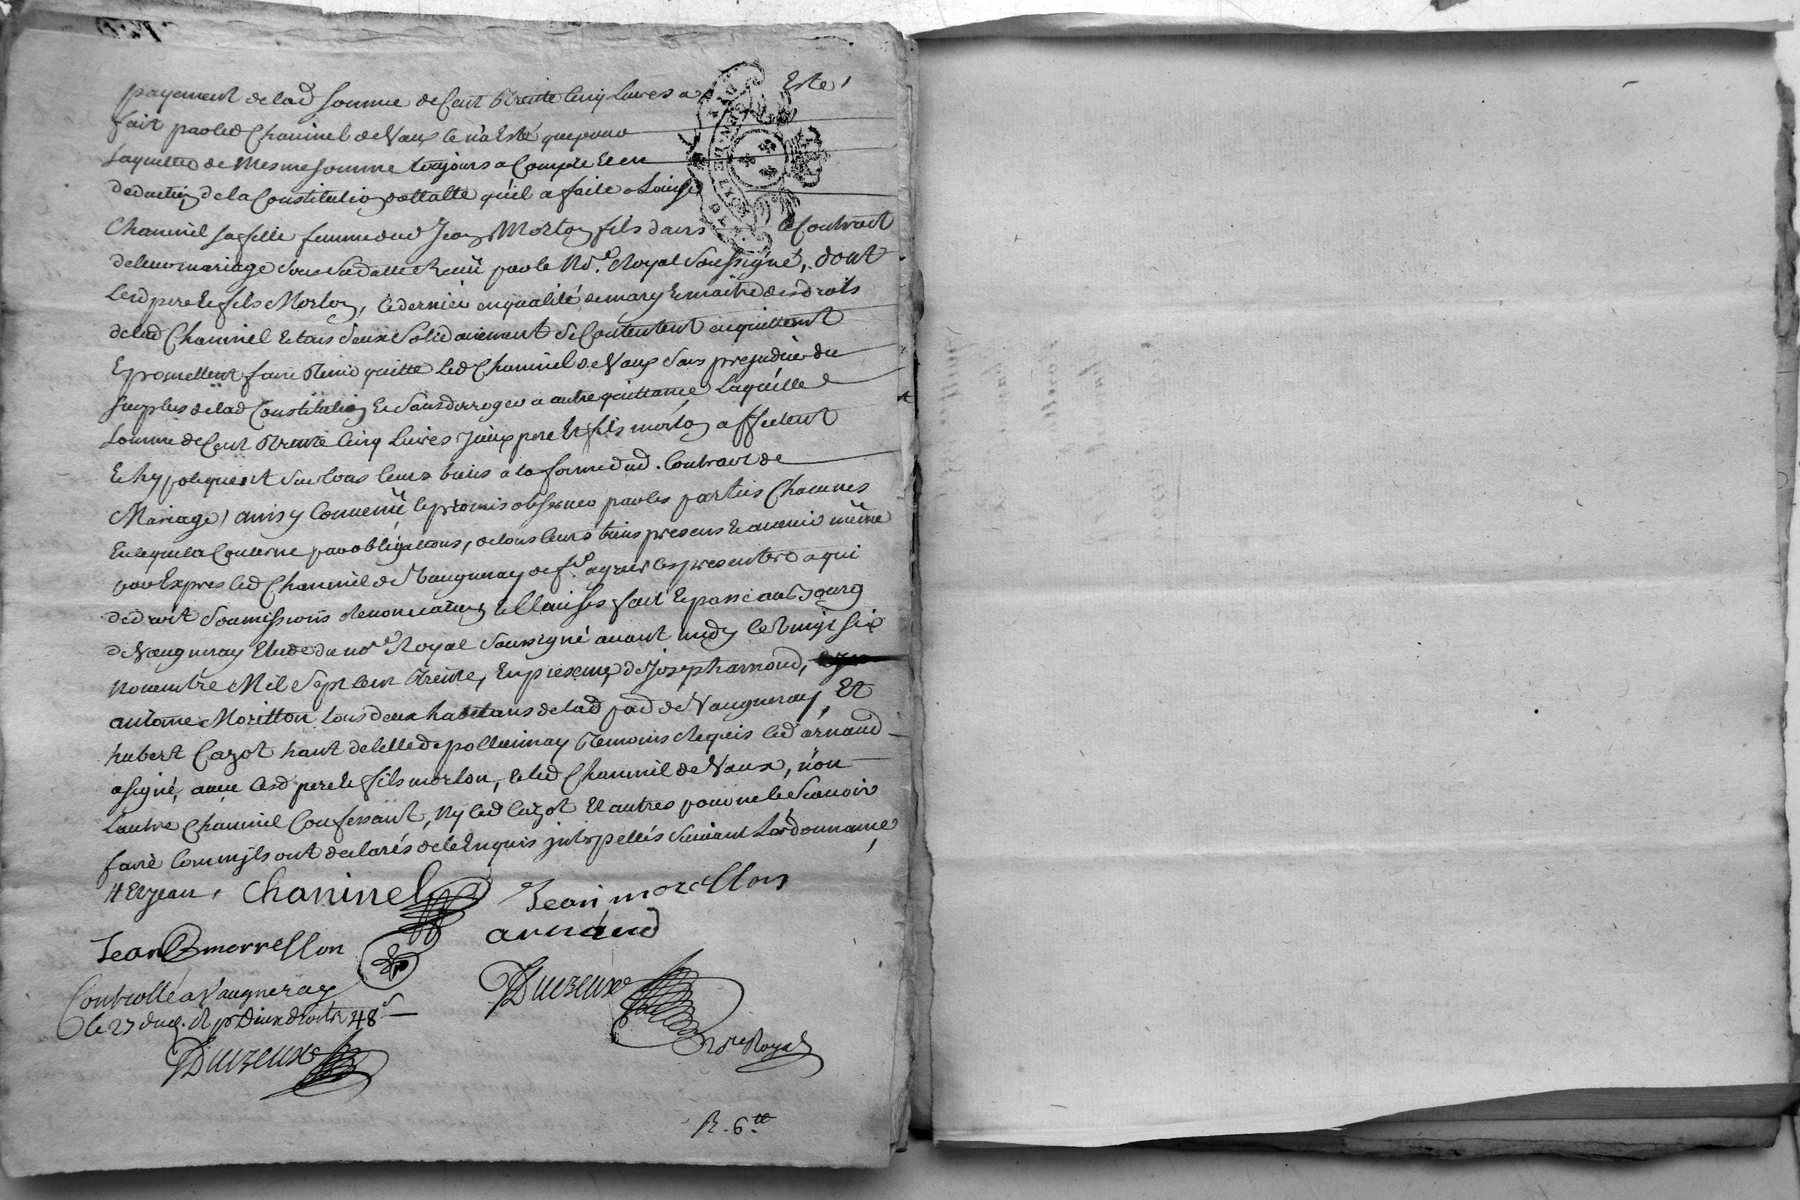 payement de lad somme de Cent Trente Cinq Livres a Esté
fait par led Chaninel de Vaux le n'a Esté que pour
Laquitter de Mesme somme toujours a Compte et en
deduction de la Constitution dottalle qu'il a faite a Louise
Chaninel sa fille femme dud Jean Morlon fils dans le Contrat
de leur mariage sous sa datte Receu par le No.re Royal soussigné, dont
lesd pere et fils Morlon, ce dernier en qualité de mary et maitre des droits
de lad Chaninel et tous deux solidairement se Contentent en quittent
Et promettent faire tenir quitte led Chaninel de Vaux sans prejudice du
surplus de lad Constitution et sans deroger a autre quittance Laquelle
somme de Cent Trente Cinq Livres Iceux pere et fils morlon affectent
et hypotequent sur tous leurs biens a la forme dud. Contract de
Mariage, ainsy Convenu et promis observer par les parties Chacunes
En ce qui la Concerne par obligations, de tous leurs biens presens et avenir même
par Expres led Chaninel de Vaugneray de f.e agreer les presentes a qui
de droit soumissions Renonciations et Clauses fait et passé au bourg
de Vaugneray Etude du no.re Royal soussigné avant midy le Vingt six
novembre Mil sept Cent Trente, En presence de Joseph arnaud,
antoine Moritton tous deux habitans de lad par de Vaugneray, Et
hubert Cazot hant de Celle de pollionnay Temoins Requis led arnaud
a signé, avec lesd pere et fils morlon, et led Chaninel de Vaux, non
Lautre Chaninel Confessant, ny led Cazot Et autres pour ne le Scavoir
faire Comm'ils ont declarés de ce Enquis interpellés suivant Lordonnance,
Chaninel Jean morellon
Jean morrellon arnaud
Controllé a Vaugneray
le 27 dud. R pr Deux droits 48 s
Duizeux Duizeux
No.re Royal
R. 6 tt